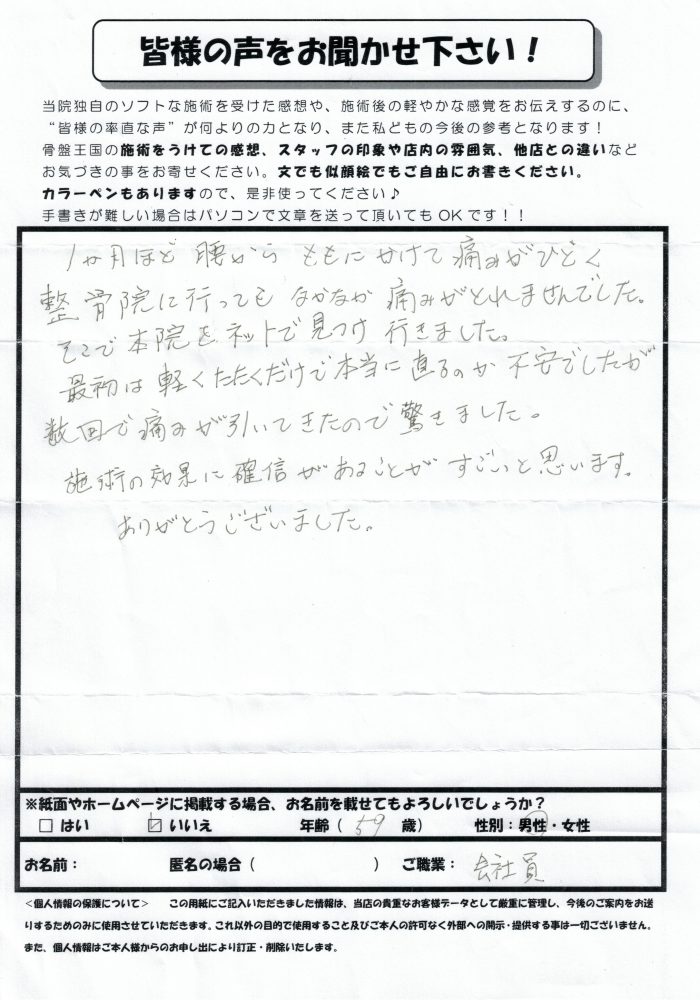 皆様の声をお聞かせ下さい！
当院独自のソフトな施術を受けた感想や、施術後の軽やかな感覚をお伝えするのに、
“皆様の率直な声”が何よりの力となり、また私どもの今後の参考となります！
骨盤王国の施術をうけての感想、スタッフの印象や店内の雰囲気、他店との違いなど
お気づきの事をお寄せください。文でも似顔絵でもご自由にお書きください。
カラーペンもありますので、是非使ってください♪
手書きが難しい場合はパソコンで文章を送って頂いてもOKです！！
1ヶ月ほど 腰から ももにかけて痛みがひどく
整骨院に行っても なかなか 痛みがとれませんでした。
そこで本院をネットで見つけ 行きました。
最初は軽くたたくだけで本当に直るのか 不安でしたが
数回で痛みが引いてきたので驚きました。
施術の効果に確信があることが すごいと思います。
ありがとうございました。
※紙面やホームページに掲載する場合、お名前を載せてもよろしいでしょうか？
□ はい ☑ いいえ 年齢（ 59 歳） 性別：男性・女性
お名前： 匿名の場合（ ） ご職業： 会社員
＜個人情報の保護について＞ この用紙にご記入いただきました情報は、当店の貴重なお客様データとして厳重に管理し、今後のご案内をお送
りするためのみに使用させていただきます。これ以外の目的で使用すること及びご本人の許可なく外部への開示・提供する事は一切ございません。
また、個人情報はご本人様からのお申し出により訂正・削除いたします。